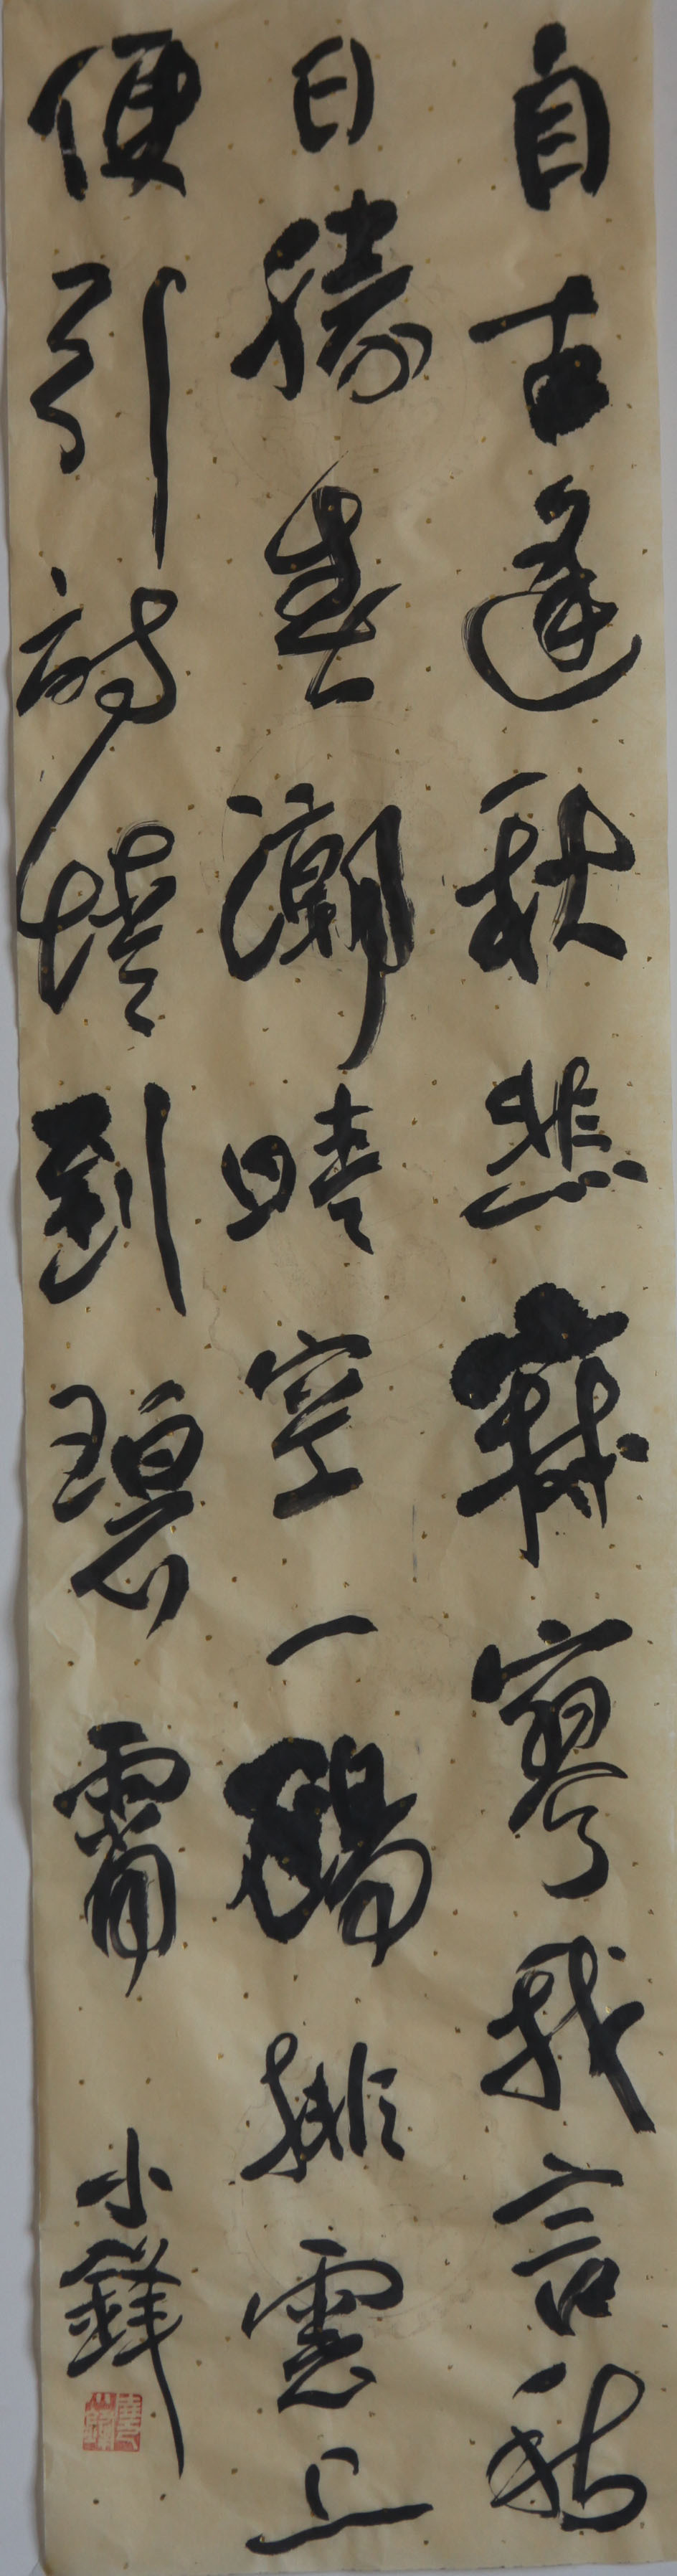 自古逢秋悲寂寥我言秋
日勝春潮晴空一鶴排雲上
便引詩情到碧霄
小鋒